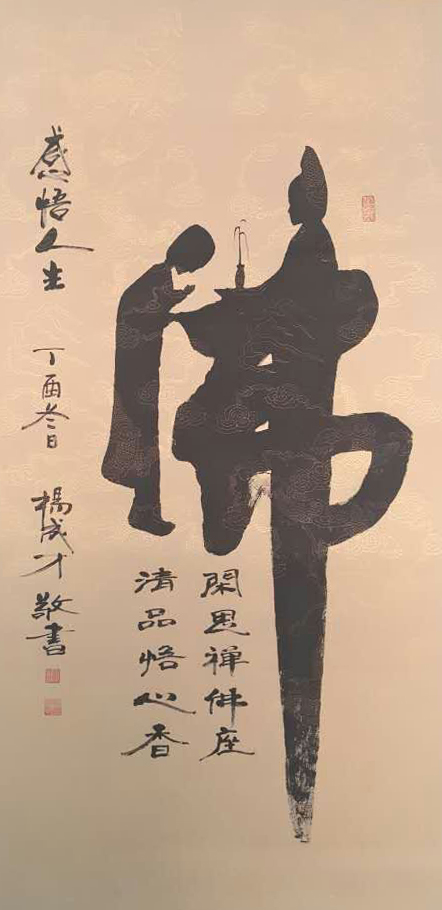 佛
閑思禅佛座
清品悟心香
感悟人生
丁酉冬日
楊成才敬書